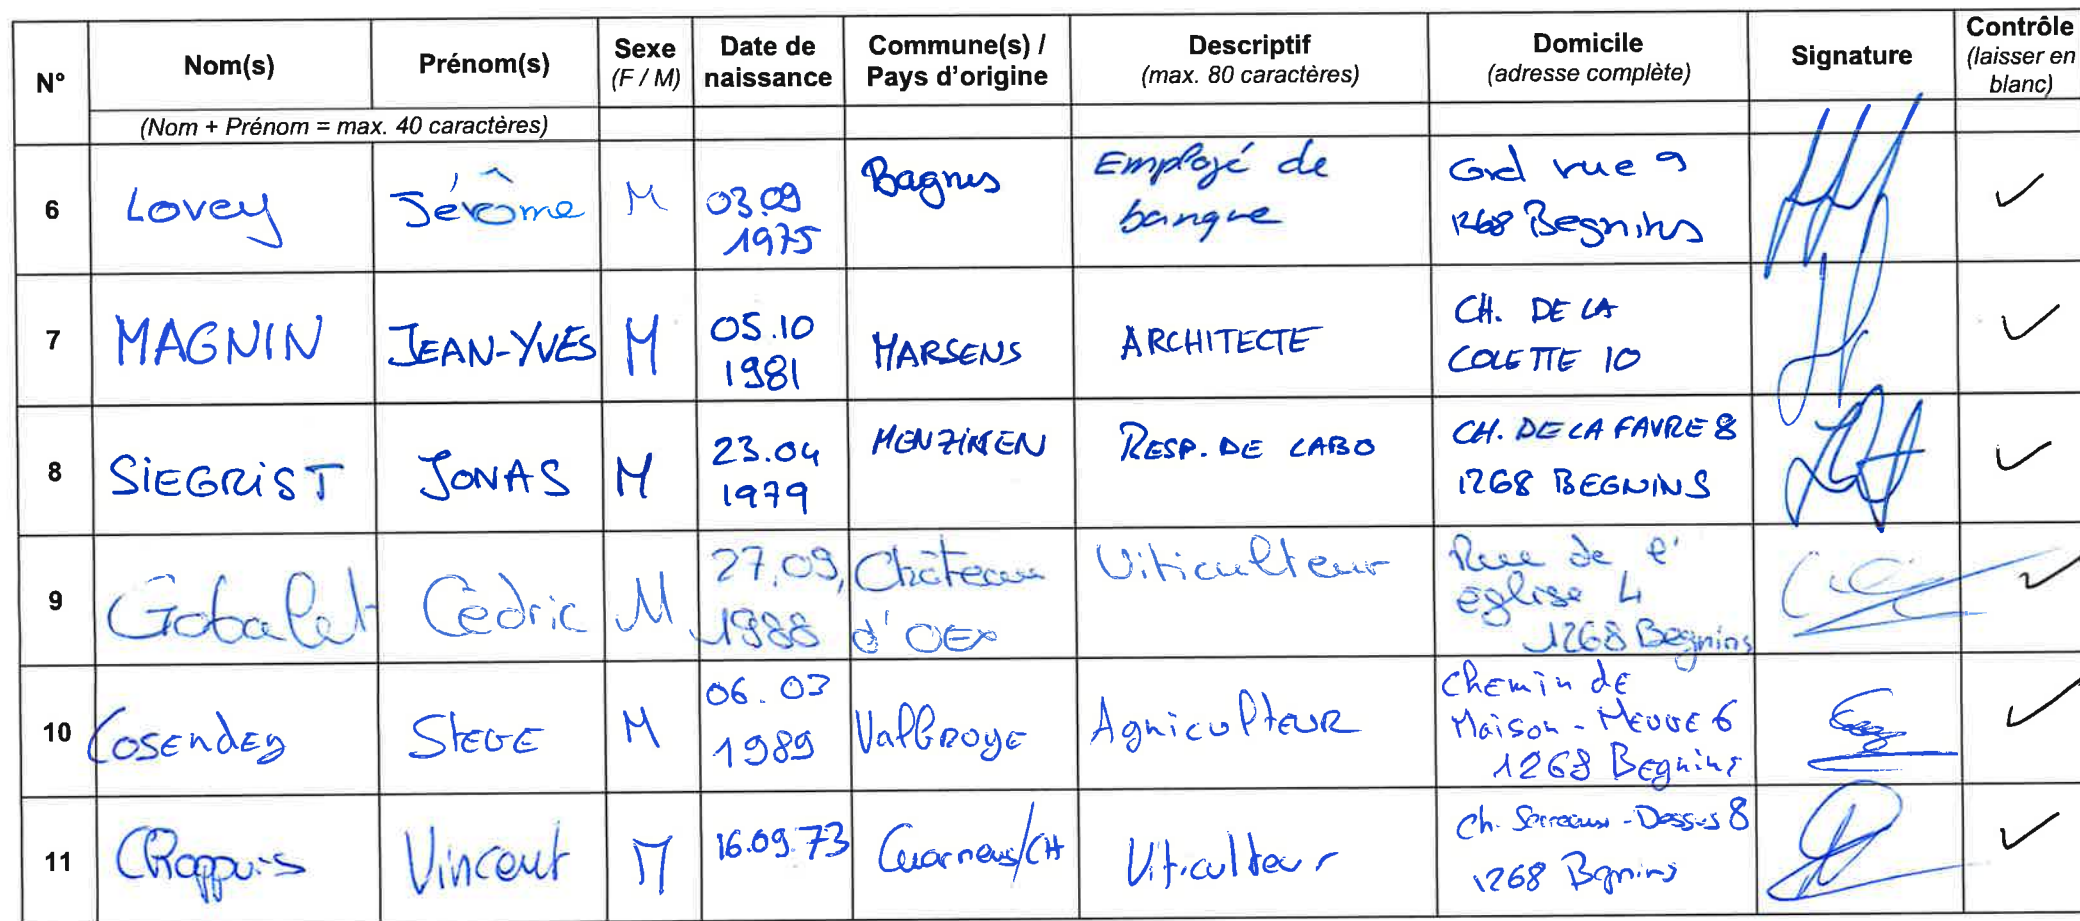 N° Nom(s) Prénom(s) Sexe (F / M) Date de naissance Commune(s) / Pays d'origine Descriptif (max. 80 caractères) Domicile (adresse complète) Signature Contrôle (laisser en blanc)
(Nom + Prénom = max. 40 caractères)
6 Lovey Jérôme M 03.09 1975 Bagnes Employé de banque Grd rue 9 1268 Begnins
7 MAGNIN JEAN-YVES M 05.10 1981 MARSENS ARCHITECTE CH. DE LA COLETTE 10
8 SIEGRIST JONAS M 23.04 1979 MENZIKEN RESP. DE LABO CH. DE LA FAVRE 8 1268 BEGNINS
9 Gobalet Cédric M 27.09. 1988 Château d'OEx Viticulteur Rue de l' église 4 1268 Begnins
10 Cosendey Steve M 06.03 1989 Valbroye Agriculteur Chemin de Maison-Neuve 6 1268 Begnins
11 Chappuis Vincent M 16.09.73 Cuarnens/CH Viticulteur Ch. Serreaux-Dessus 8 1268 Begnins